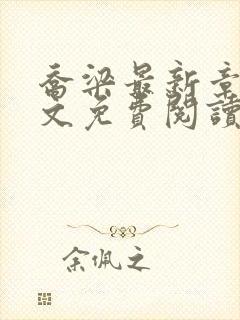 喬梁最新章
文免費閱讀
余佩之